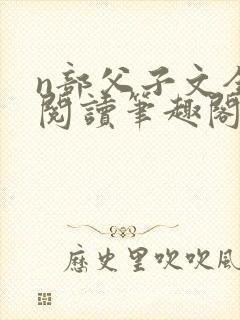 n部父子文全
閱讀筆趣閣
歷史里吹吹風